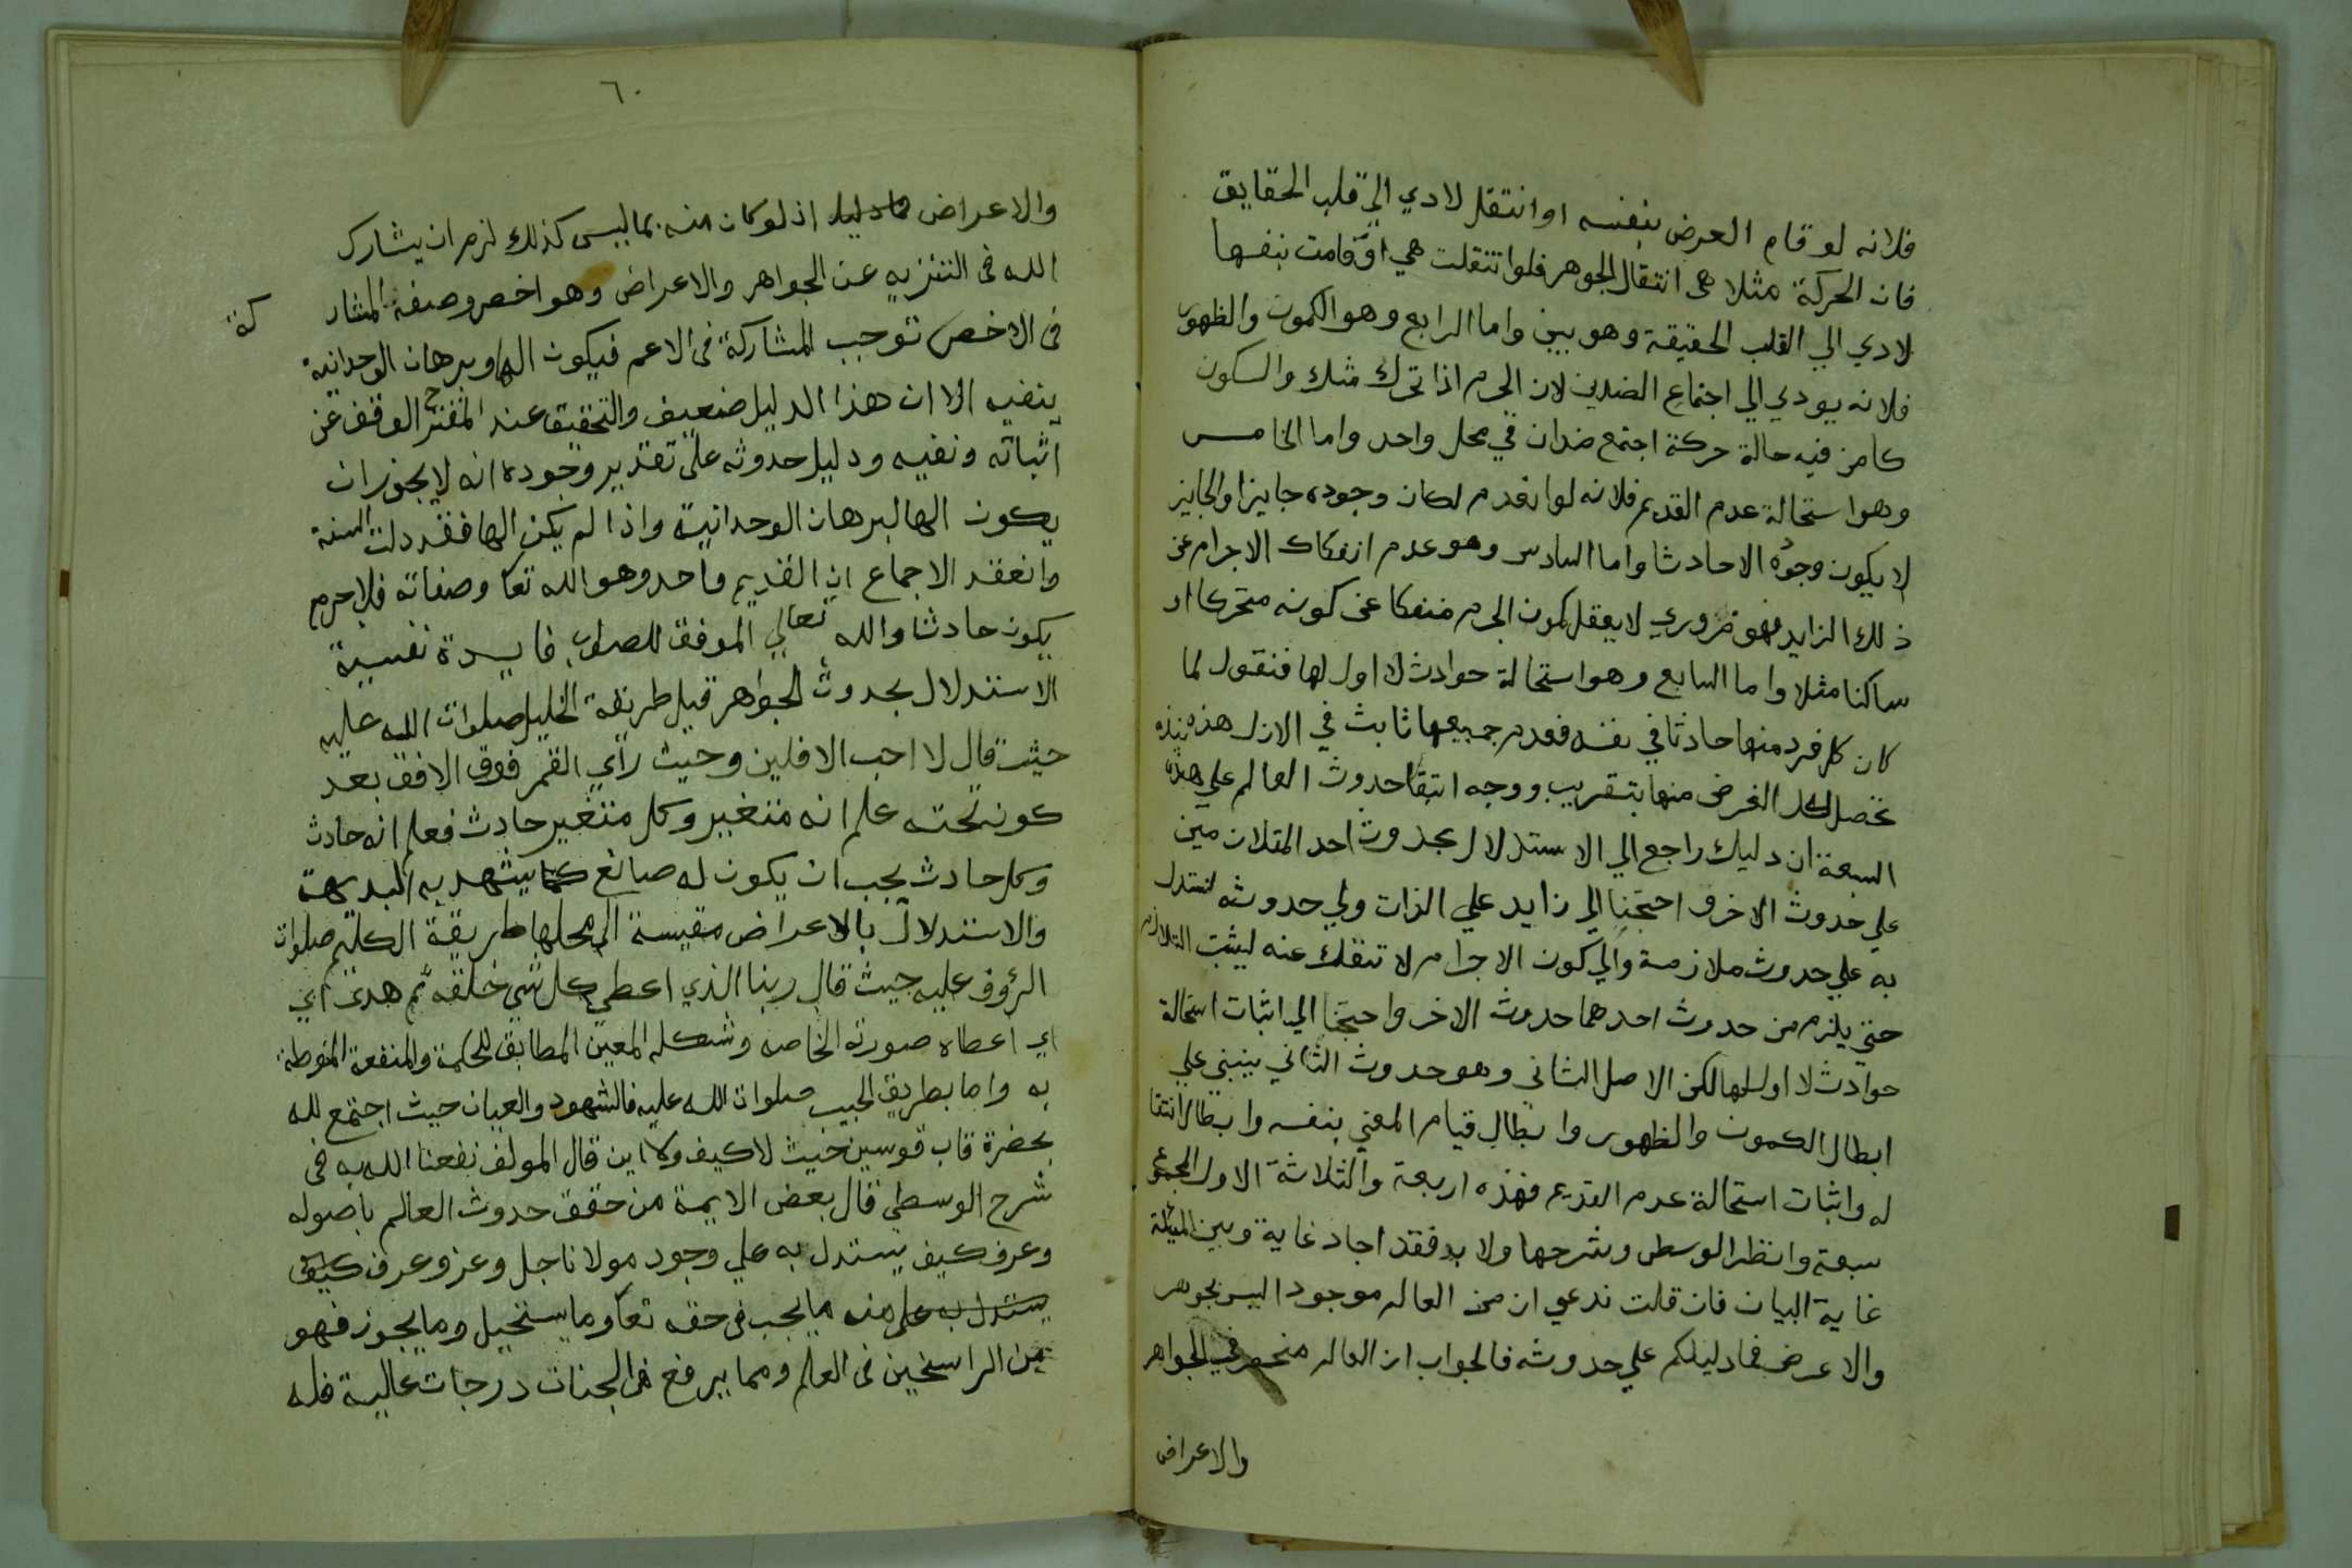 فلانه لو قام العرض بنفسه او انتقل لادي الي قلب الحقايق
فان الحركة مثلا هى انتقال الجوهر فلو انتقلت هي او قامت بنفسها
لادي الي القلب الحقيقة وهو بين واما الرابع وهو الكمون والظهور
فلانه يودي الي اجتماع الضدين لان الجرم اذا تحرك مثلا والسكون
كامن فيه حالة حركة اجتمع ضدان في محل واحد واما الخامس
وهو استحالة عدم القديم فلانه لو انعدم لكان وجوده جايزا والجايز
لا يكون وجوده الا حادثا واما السادس وهو عدم انفكاك الاجرام عن
ذلك الزايد فهو ضروري لا يعقل كون الجرم منفكا عن كونه متحركا او
ساكنا مثلا واما السابع وهو استحالة حوادث لا اول لها فنقول لما
كان كل فرد منها حادثا في نفسه فعدم جميعها ثابت في الازل هذه نبذه
تحصل لك الغرض منها بتقريب ووجه ابتنا حدوث العالم علي هذه
السبعة ان دليلك راجع الي الاستدلال بحدوث احد المتلازمين
علي حدوث الاخر فاحتجنا الي زايد علي الذات والي حدوثه لنستدل
به علي حدوث ملازمة والي كون الاجرام لا تنفك عنه ليثبت التلازم
حتي يلزم من حدوث احدهما حدوث الاخر واحتجنا الي اثبات استحالة
حوادث لا اول لها لكن الاصل الثاني وهو حدوث الثاني ينبني علي
ابطال الكمون والظهور وابطال قيام المعني بنفسه وابطال انتقا
له واثبات استحالة عدم القديم فهذه اربعة والثلاثة الاول المجموع
سبعة وانظر الوسطى وشرحها ولا بد فقد اجاد غاية وبين المسئلة
غاية البيان فان قلت ندعي ان من العالم موجودا ليس بجوهر
والاعرض فما دليلكم علي حدوثه فالجواب ان العالم منحصر في الجواهر
والاعراض
٦٠
والاعراض فما دليله اذ لو كان منه بما ليس كذلك لزم ان يشارك
الله فى التنزيه عن الجواهر والاعراض وهو اخص وصفه المشار كة
فى الاخص توجب المشاركة فى الاعم فيكون الها وبرهان الوحدانية
ينفيه الا ان هذا الدليل ضعيف والتحقيق عند المقترح الوقف عن
اثباته ونفيه ودليل حدوثه على تقدير وجوده انه لا يجوز ان
يكون الها لبرهان الوحدانية واذا لم يكن الها فقد دلت السنة
وانعقد الاجماع ان القديم واحد وهو الله تعا وصفاته فلا جرم
يكون حادثا والله تعالي الموفق للصواب فايدة نفسية
الاستدلال بحدوث الجواهر قيل طريقة الخليل صلوات الله عليه
حيث قال لا احب الافلين وحيث راي القمر فوق الافق بعد
كونه تحته علم انه متغير وكل متغير حادث فعلم انه حادث
وكل حادث يجب ان يكون له صانع كما يشهد به البديهة
والاستدلال بالاعراض مقيسة الى محلها طريقة الكليم صلوات
الرؤوف عليه حيث قال ربنا الذي اعطي كل شي خلقه ثم هدى اي
اي اعطاه صورته الخاصه وشكله المعين المطابق للحكمة والمنفعة المنوطة
به واما بطريق الحبيب صلوات الله عليه فالشهود والعيان حيث اجتمع لله
بحضرة قاب قوسين حيث لا كيف ولا اين قال المولف نفعنا الله به فى
شرح الوسطي قال بعض الايمة من حقق حدوث العالم باصوله
وعرف كيف يستدل به علي وجود مولانا جل وعز وعرف كيف
يستدل به على منه ما يجب فى حقه تعا وما يستحيل وما يجوز فهو
من الراسخين فى العلم ومما يرفع فى الجنات درجات عالية فله